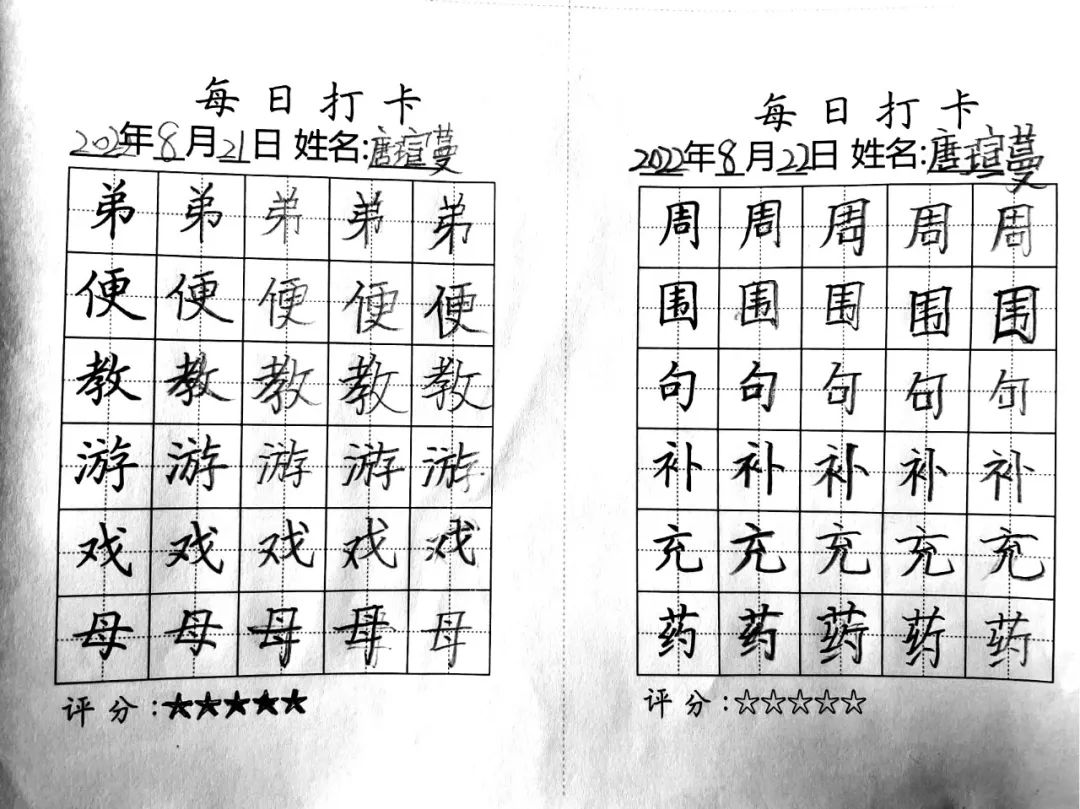 每日打卡
2022年8月21日 姓名:唐瑄蔓
弟弟弟弟弟
便便便便便
教教教教教
游游游游游
戏戏戏戏戏
母母母母母
评分:★★★★★
每日打卡
2022年8月22日 姓名:唐瑄蔓
周周周周周
围围围围围
句句句句句
补补补补补
充充充充充
药药药药药
评分:☆☆☆☆☆